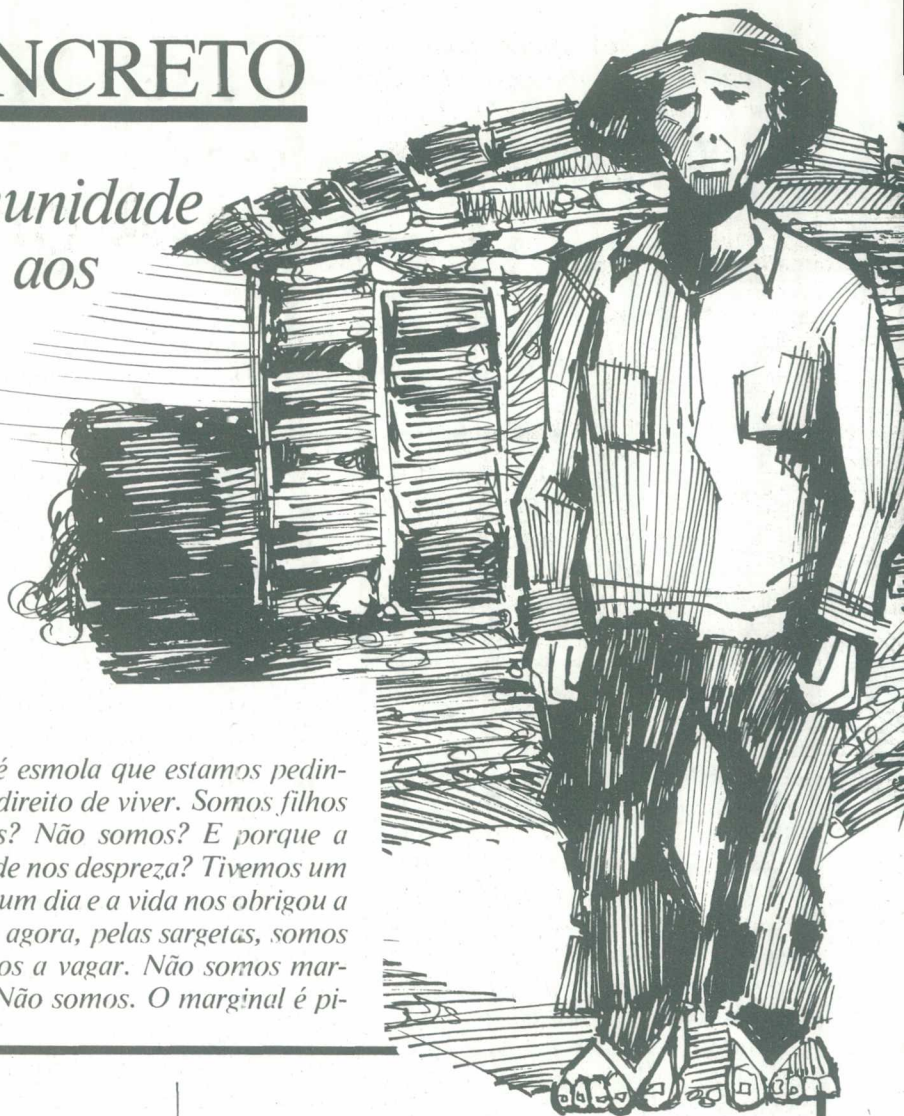 NCRETO
unidade
aos
é esmola que estamos pedin-
direito de viver. Somos filhos
s? Não somos? E porque a
de nos despreza? Tivemos um
um dia e a vida nos obrigou a
agora, pelas sargetas, somos
os a vagar. Não somos mar-
Não somos. O marginal é pi-